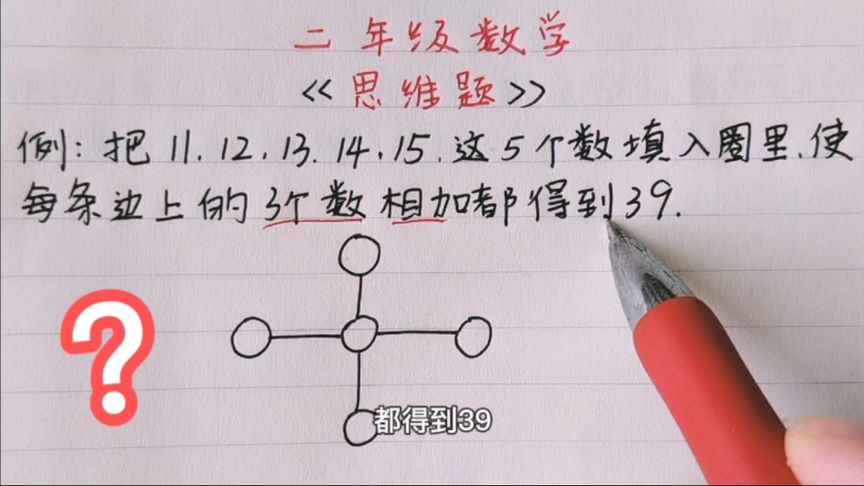 二年级数学
《思维题》
例:把11.12.13.14.15.这5个数填入圈里.使
每条边上的3个数相加都得到39.
?
都得到39